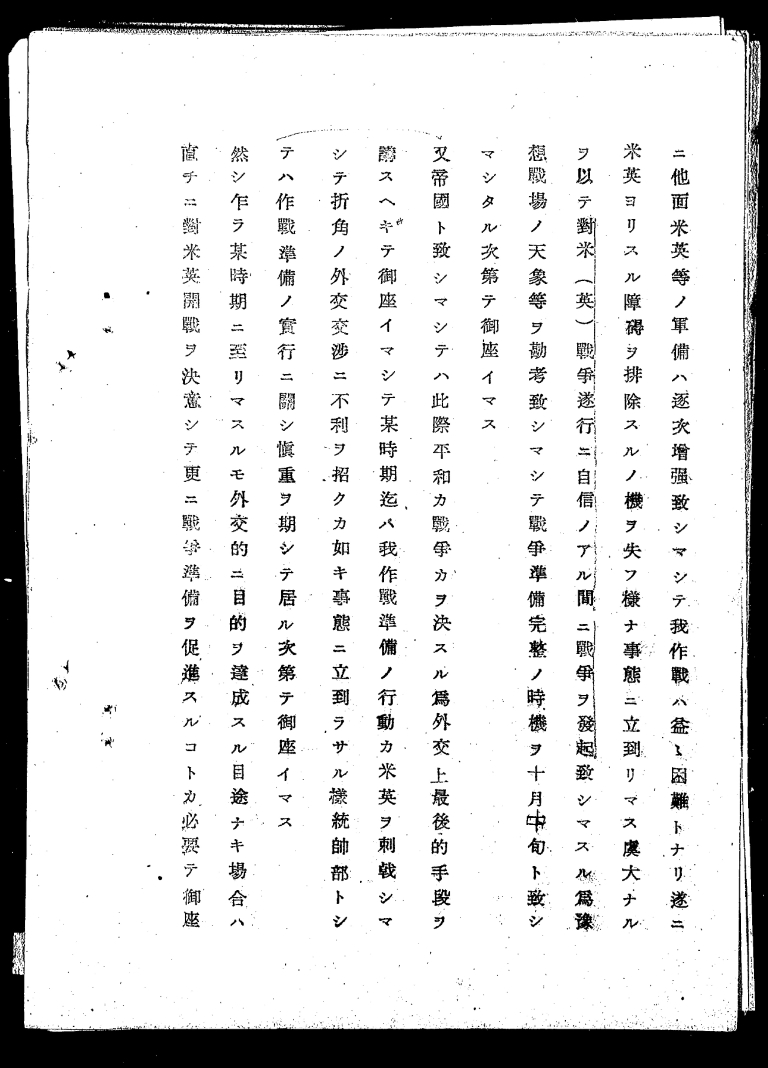 ニ他面米英等ノ軍備ハ逐次增强致シマシテ我作戰ハ益〻困難トナリ遂ニ
米英ヨリスル障碍ヲ排除スルノ機ヲ失フ樣ナ事態ニ立到リマス虞大ナル
ヲ以テ對米（英）戰爭遂行ニ自信ノアル間ニ戰爭ヲ發起致シマスル爲豫
想戰場ノ天象等ヲ勘考致シマシテ戰爭準備完整ノ時機ヲ十月中旬ト致シ
マシタル次第テ御座イマス
又帝國ト致シマシテハ此際平和カ戰爭カヲ決スル爲外交上最後的手段ヲ
講スヘキテ御座イマシテ某時期迄ハ我作戰準備ノ行動カ米英ヲ刺戟シマ
シテ折角ノ外交交涉ニ不利ヲ招クカ如キ事態ニ立到ラサル樣統帥部トシ
テハ作戰準備ノ實行ニ關シ愼重ヲ期シテ居ル次第テ御座イマス
然シ乍ラ某時期ニ至リマスルモ外交的ニ目的ヲ達成スル目途ナキ場合ハ
直チニ對米英開戰ヲ決意シテ更ニ戰爭準備ヲ促進スルコトカ必要テ御座